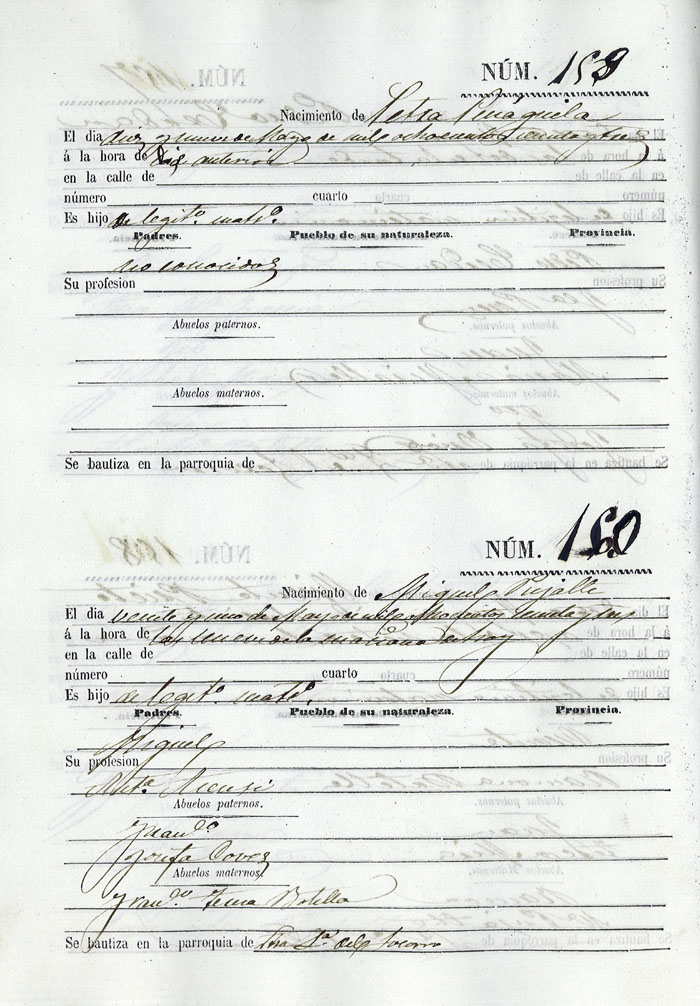 NÚM. 159
Nacimiento de Petra Penáguila
El dia diez y nueve de Mayo de mil ochocientos sesenta y tres
á la hora de dia anterior
en la calle de
número cuarto
Es hijo de legit.º mat.º
Padres. Pueblo de su naturaleza. Provincia.
no conocidos
Su profesion
Abuelos paternos.
Abuelos maternos.
Se bautiza en la parroquia de
NÚM. 160
Nacimiento de Miguel Pujalte
El dia veinte y uno de Mayo de mil ochocientos sesenta y tres
á la hora de las nueve de la mañana de hoy
en la calle de
número cuarto
Es hijo de legit.º mat.º
Padres. Pueblo de su naturaleza. Provincia.
Miguel
Su profesion
Ant.ª Asensi
Abuelos paternos.
Fran.co
Josefa Cover
Abuelos maternos.
Fran.co Botella
Se bautiza en la parroquia de Ntra Sª. del Socorro